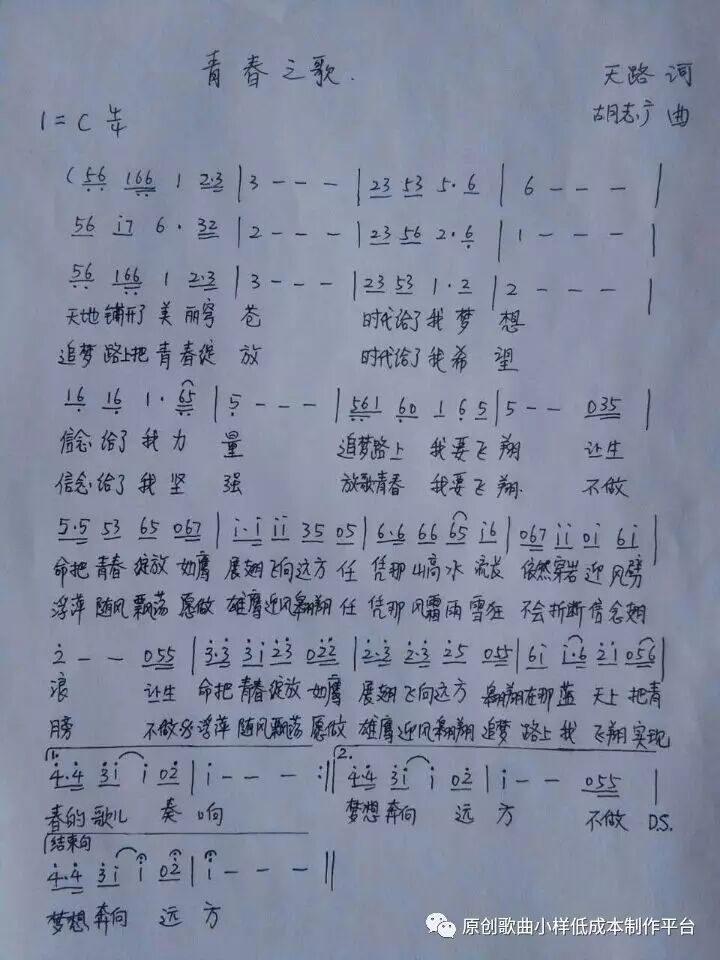 青春之歌.
天路 词
1=C 4/4
胡志广 曲
(56 166 1 2·3 | 3 - - - | 23 53 5·6 | 6 - - - |
56 i7 6· 32 | 2 - - - | 23 56 2·6 | 1 - - - |
56 166 1 2·3 | 3 - - - | 23 53 1·2 | 2 - - - |
天地铺开了美丽穹苍 时代给了我梦想
追梦路上把青春绽放 时代给了我希望
16 16 1· 65 | 5 - - - | 561 60 1 6 5 | 5 - - 035 |
信念给了我力量 追梦路上 我要飞翔 让生
信念给了我坚强 放歌青春 我要飞翔. 不做
5·5 53 65 067 | i·i ii 35 05 | 6·6 66 65 i6 | 067 ii 0i 6i |
命把青春绽放 如鹰 展翅飞向远方 任 凭那山高水流长 依然穿岩迎风劈
浮萍随风飘荡 愿做 雄鹰迎风翱翔 任 凭那风霜雨雪狂 不会折断信念翅
2 - - 055 | 3·3 3i 23 022 | 2·3 2·3 25 055 | 6i i·6 2i 056 |
浪 让生 命把青春绽放 如鹰 展翅飞向远方 翱翔在那蓝天上 把青
膀 不做 浮萍随风飘荡 愿做 雄鹰迎风翱翔 追梦路上我飞翔 实现
1.
2.
4·4 3i i 02 | i - - - :|| 4·4 3i i 02 | i - - 055 |
春的歌儿 奏响 梦想奔向 远方 不做 D.S.
结束句
4·4 3i i 02 | i - - - ||
梦想奔向 远方
原创歌曲小样低成本制作平台